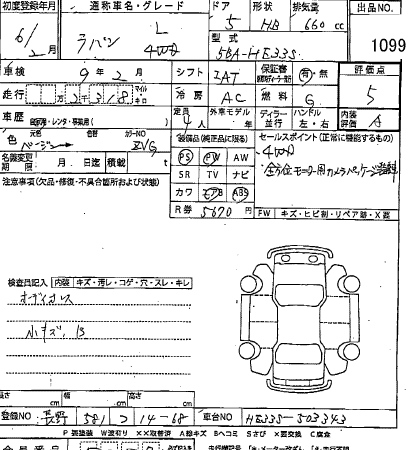 初度登録年月 通称車名・グレード ドア 形状 排気量 出品NO.
6/2月 ラパン L 4WD 5 HB 660 cc 1099
型式 5BA-HE33S
車検 9年2月 シフト IAT 保証書 有・無 評価点
走行 万 2千318 マイル キロ 冷房 AC 燃料 G 5
車歴 自家用・レンタ・事業用( ) 定員 4人 外車モデル ディーラー 並行 ハンドル 左・右 内装評価 A
色 元色 ベージュ 色替 カラーNO ZVG
装備品(純正品に限る) セールスポイント(正常に機能するもの)
名義変更期限 月 日迄 積載 t
PS PW AW 4WD
SR TV ナビ 全方位モニター用カメラパッケージ装着車
注意事項(欠品・修復・不具合箇所および状態)
カワ エアB ABS
R券 5670 FW キズ・ヒビ割・リペア跡・X要
検査員記入 内装 キズ・汚レ・コゲ・穴・スレ・キレ
オーディオレス
小キズ、B
長さ cm 幅 cm 高さ cm
登録NO 長野 581 つ 14-68 車台NO HE33S-503343
P要塗装 W波有り XX取替済 A線キズ Bヘコミ Sさび X要交換 C腐食